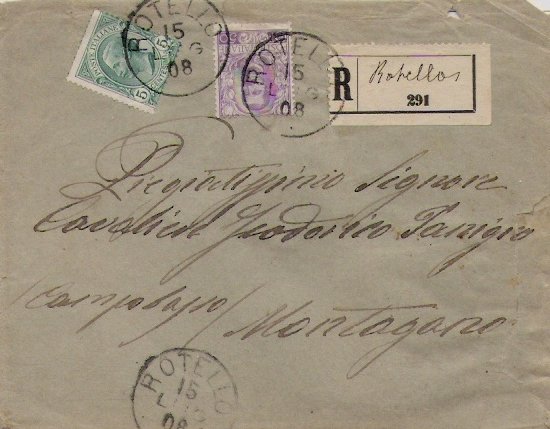 ROTELLO
15
LUG
08
POSTE ITALIANE
5
ROTELLO
15
LUG
08
R Rotello
291
Pregiatissimo Signore
Cavaliere Teodorico
/Campobasso/ Montagano
ROTELLO
15
LUG
08